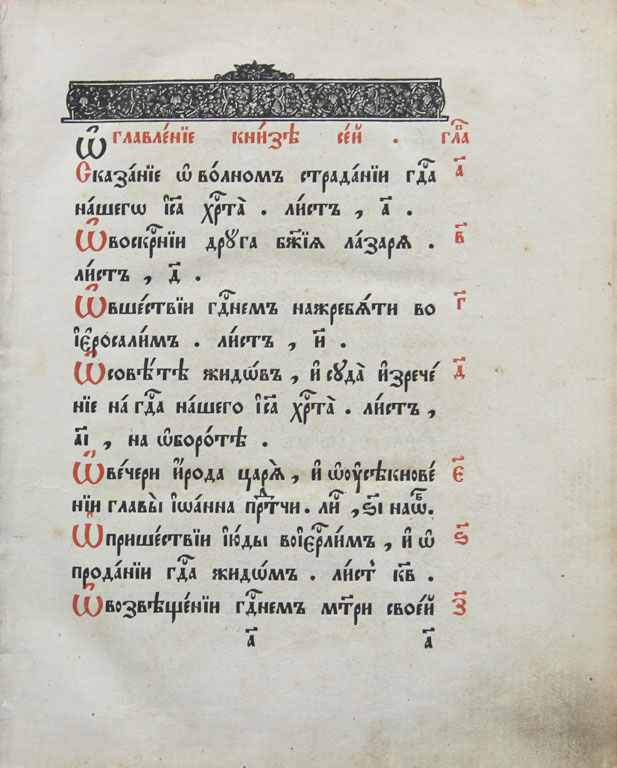 Ѡ҆главле́нїе кни́зѣ се́й . гл҃а
Сказа́нїе ѡ҆ во́лномъ страда́нїи гд҇а а҃
на́шегѡ і҆с҃а хр҇та̀ . ли́стъ , а҃ .
Ѡ҆ воскр҇нїи дрꙋга бж҃їѧ ла́зарѧ . в҃
ли́стъ , д҃ .
Ѡ҆ вше́ствїи гд҇немъ на жребѧ́ти во г҃
і҆е҆росали́мъ . ли́стъ , и҃ .
Ѡ҆ совѣ́тѣ жидѡ́въ , и҆ сꙋда̀ и҆зрече́ д҃
нїе на́ гд҇а на́шего і҆с҃а хр҇та̀ . ли́стъ ,
а҃і , на ѡ҆боро́тѣ .
Ѡ҆ ве́чери и҆́рода царѧ̀ , и҆ ѡ҆ оу҆сѣкнове́ є҃
нїи главы̀ і҆ѡа́нна прⷣтчи . ли҇ , ѕ҃і на ѡ҆б .
Ѡ҆ прише́ствїи і҆ю́ды во і҆ер҇лимъ , и҆ ѡ҆ ѕ҃
прода́нїи гд҇а жидѡ́мъ . ли́ст̾ к҃в .
Ѡ҆ возвѣще́нїи гд҇немъ мт҃ри свое́й з҃
а҃ а҃